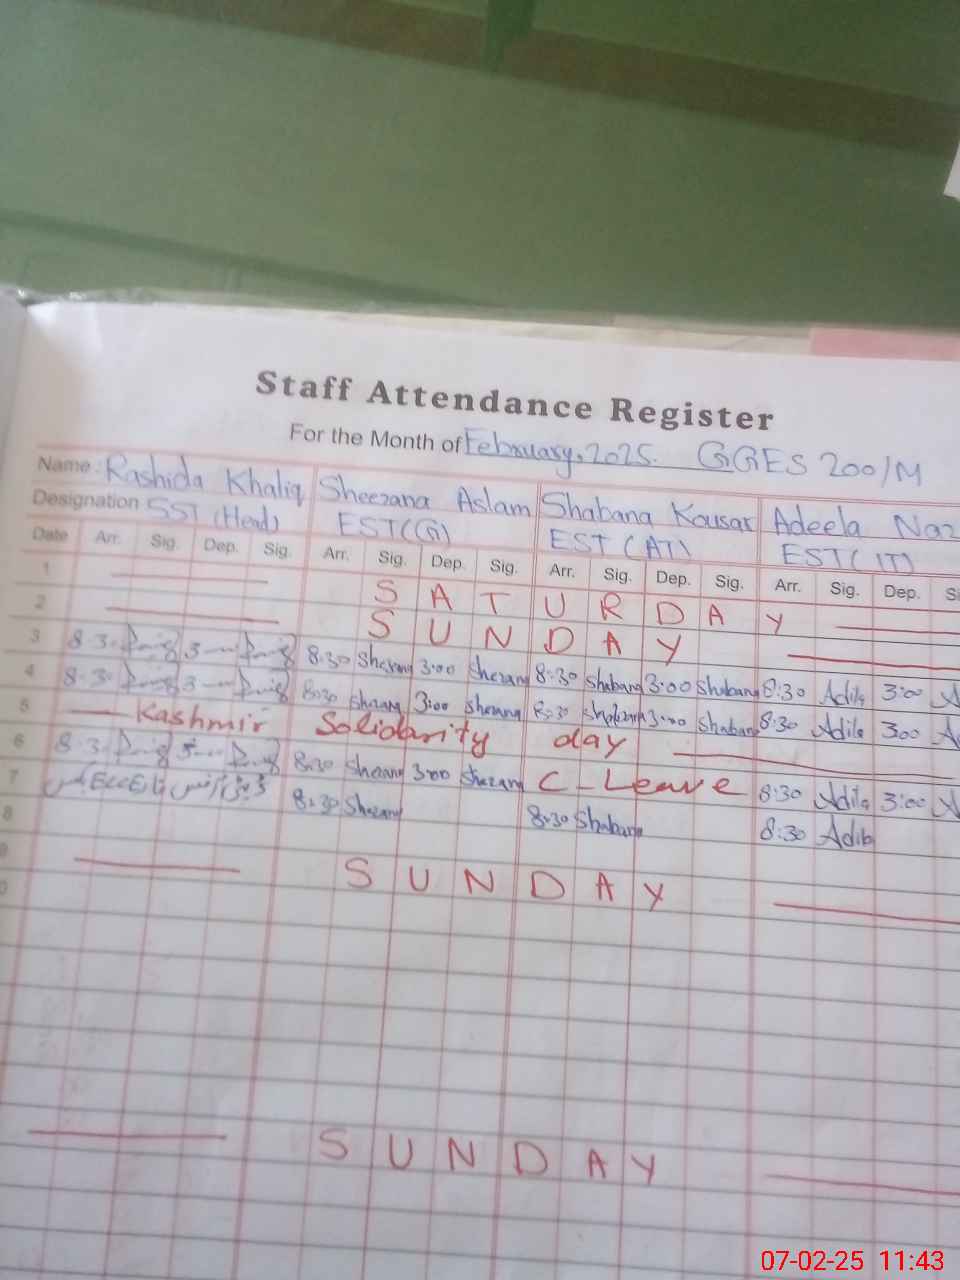 Staff Attendance Register
For the Month of February, 2025. GGES 200/M
Name: Rashida Khaliq Sheezana Aslam Shabana Kousar Adeela Naz
Designation SST (Head) EST(G) EST (AT) EST(IT)
Date Arr. Sig. Dep. Sig. Arr. Sig. Dep. Sig. Arr. Sig. Dep. Sig. Arr. Sig. Dep. Si
1 S A T U R D A Y
2 S U N D A Y
3 8:30 3 8:30 3:00 8:30 Shabana 3:00 Shabana 8:30 Adila 3:00 A
4 8:30 3 8:30 3:00 8:30 Shabana 3:00 Shabana 8:30 Adila 300 A
5 Kashmir Solidarity day
6 8:30 3 8:30 3:00 C-Leave 8:30 Adila 3:00 A
7 8:30 8:30 Shabana 8:30 Adila
8
9 S U N D A Y
0
S U N D A Y
07-02-25 11:43